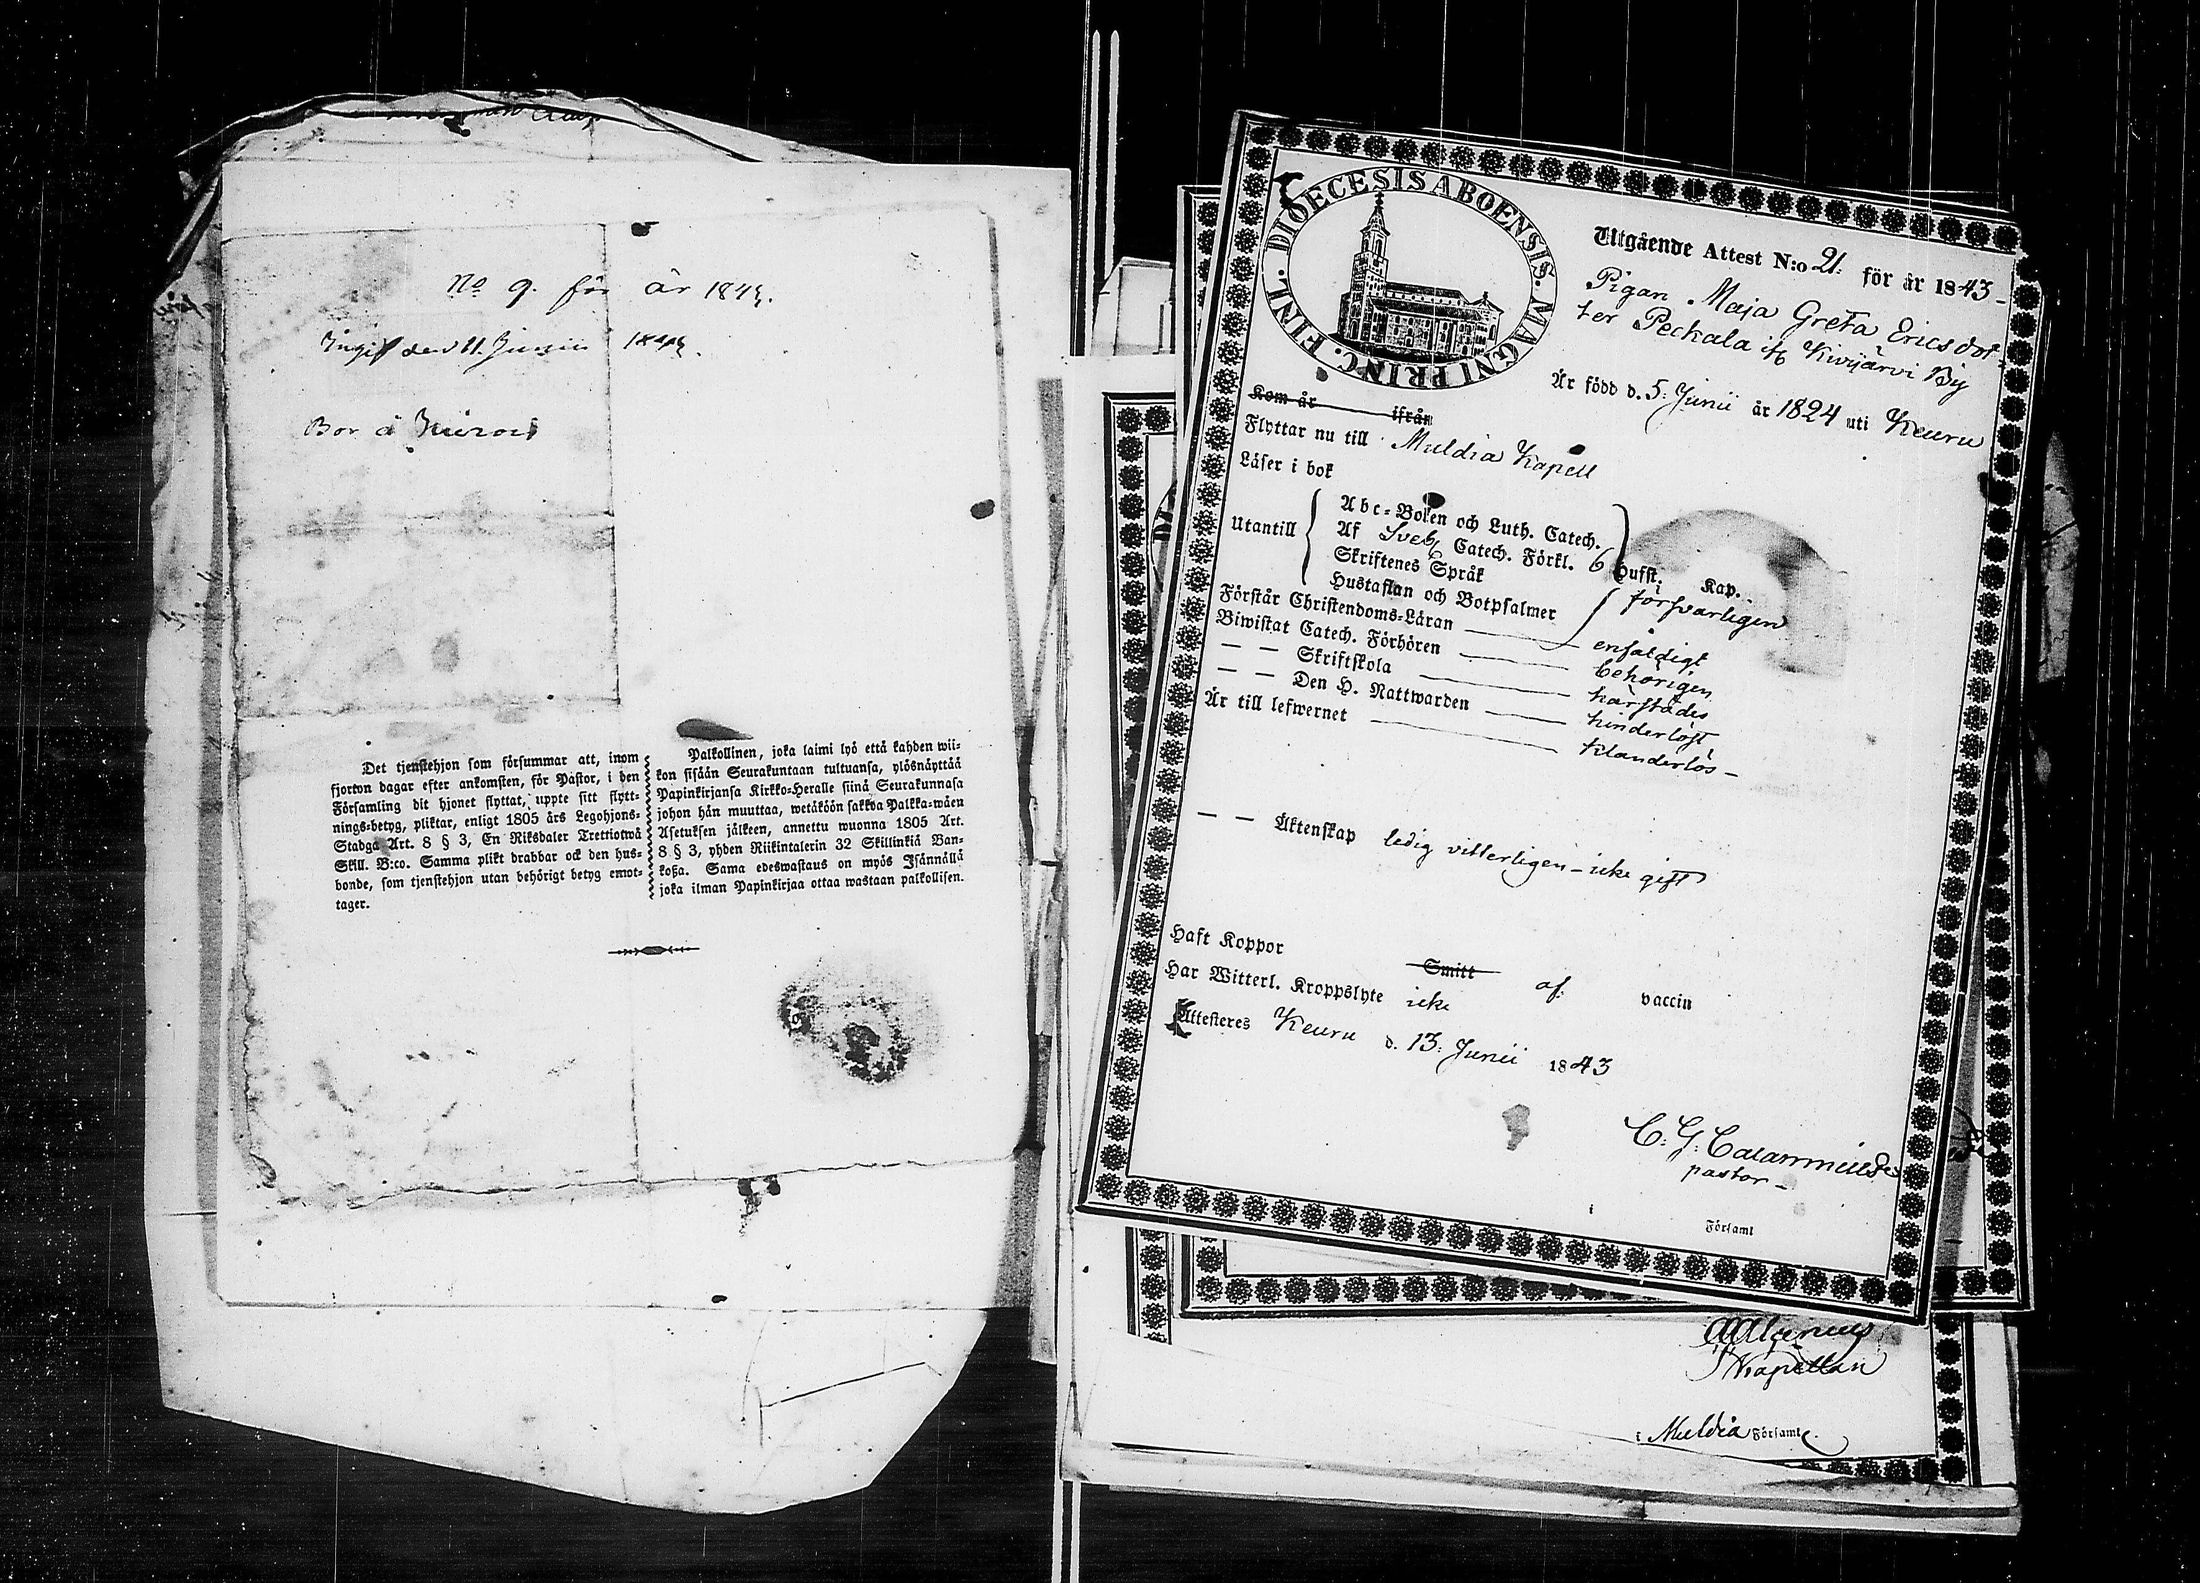 No 9. för år 1843.
Ingif den 11. Junii 1843.
Bor å
Det tjenstehjon som försummar att, inom
fjorton dagar efter ankomsten, för Pastor, i den
Församling dit hjonet flyttat, uppte sitt flytt-
nings-betyg, pliktar, enligt 1805 års Legohjons-
Stadga Art. 8 § 3, En Riksdaler Trettiotwå
Skill. B:co. Samma plikt drabbar ock den hus-
bonde, som tjenstehjon utan behörigt betyg emot-
tager.
Palkollinen, joka laimi lyö että kahden wii-
kon sisään Seurakuntaan tultuansa, ylösnäyttää
Papinkirjansa Kirkko-Heralle siinä Seurakunnasa
johon hän muuttaa, wetäköön sakkoa Palkka-wäen
Asetuksen jälkeen, annettu wuonna 1805 Art.
8 § 3, yhden Riikintalerin 32 Skillinkiä Ban-
koßa. Sama edeswastaus on myös Isännällä
joka ilman Papinkirjaa ottaa wastaan palkollisen.
DIOECESIS ABOENSIS. MAGNI PRINC. FINL.
Utgående Attest N:o 21. för år 1843-
Pigan Maja Greta Ericsdot-
ter Peckala if Kivijärvi By
Är född d. 5. Junii år 1824 uti Keuru
Kom år ifrån
Flyttar nu till Muldia Kapell
Läser i bok
Utantill
Abc-Boken och Luth. Catech.
Af Sveb. Catech. Förkl. 6 Hufst. Kap.
Skriftenes Språk
Hustaflan och Botpsalmer försvarligen
Förstår Christendoms-Läran enfaldigt
Biwistat Catech. Förhören behörigen
— — Skriftskola härstädes
— — Den H. Nattwarden hinderlöst
Är till lefwernet klanderlös -
— — Äktenskap ledig vitterligen - icke gift
Haft Koppor Smitt af vaccin
Har Witterl. Kroppslyte icke
Attesteres Keuru d. 13. Junii 1843
C. G. Calamnius
pastor -
i Församl
Kapellan
i Muldia Församl.